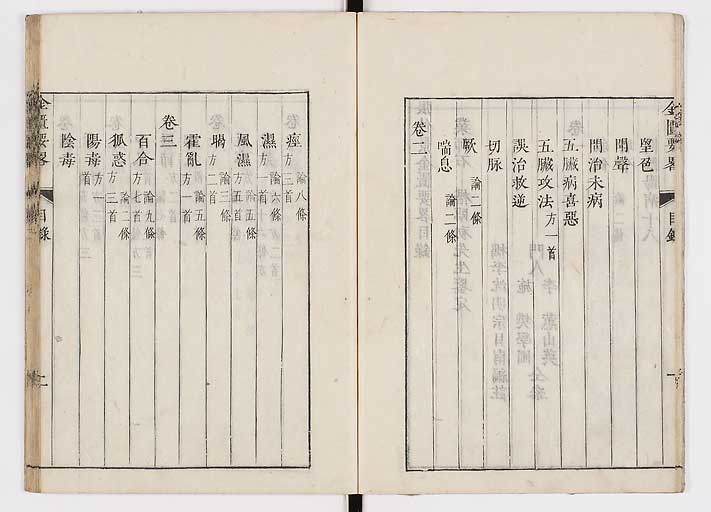 金匱要畧
目錄
一
望色
聞聲
問治未病
五臟病喜惡
五臟攻法方一首
誤治救逆
切脉
厥論二條
喘息論二條
卷二
痙論八條方三首
濕論六條方一首
風濕論五條方五首
暍論三條方二首
霍亂論五條方一首
卷三
百合論九條方七首
狐惑論二條方三首
陽毒論一條方一首
陰毒
金匱要畧
目錄
二